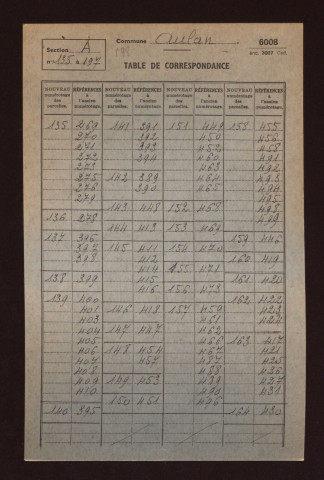 Section A
nos 135 à 197
Commune Aulan
6008
MOD. 3007 Cad.
TABLE DE CORRESPONDANCE
NOUVEAU numérotage des parcelles. RÉFÉRENCES à l'ancien numérotage NOUVEAU numérotage des parcelles. RÉFÉRENCES à l'ancien numérotage NOUVEAU numérotage des parcelles. RÉFÉRENCES à l'ancien numérotage NOUVEAU numérotage des parcelles. RÉFÉRENCES à l'ancien numérotage
135 269 141 391 151 449 158 455
270 392 450 456
271 393 452 458
272 394 460 491
273 463 492
275 142 389 464 493
276 390 465 494
279 495
143 448 152 458 498
136 278 419
144 413 153 461
137 396 159 446
397 145 411 154 470
398 412 160 419
414 155 471
138 399 415 161 420
416 156 473
139 400 162 422
401 146 418 157 459 423
403 461
404 147 447 462
405 466 163 417
406 148 454 467 421
407 457 487 425
408 488 436
409 149 453 489 427
410 490 431
150 451 496
140 395 164 430